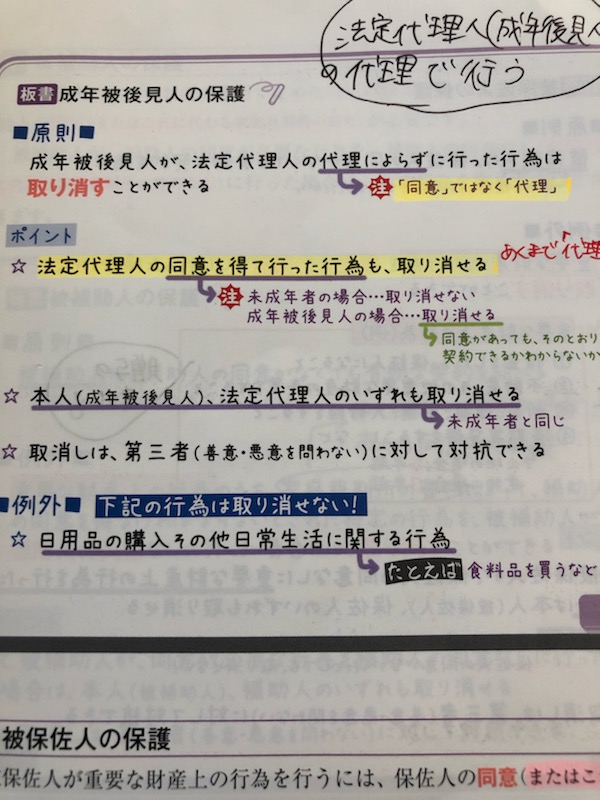 法定代理人(成年後見人
の代理で行う
板書 成年被後見人の保護
■原則■
成年被後見人が、法定代理人の代理によらずに行った行為は
取り消すことができる
注 「同意」ではなく「代理」
ポイント
あくまで「代理
☆ 法定代理人の同意を得て行った行為も、取り消せる
注 未成年者の場合…取り消せない
成年被後見人の場合…取り消せる
同意があっても、そのとおり
契約できるかわからないか
☆ 本人(成年被後見人)、法定代理人のいずれも取り消せる
未成年者と同じ
☆ 取消しは、第三者(善意・悪意を問わない)に対して対抗できる
■例外■ 下記の行為は取り消せない!
☆ 日用品の購入その他日常生活に関する行為
たとえば 食料品を買うなど
被保佐人の保護
保佐人が重要な財産上の行為を行うには、保佐人の同意(またはこ